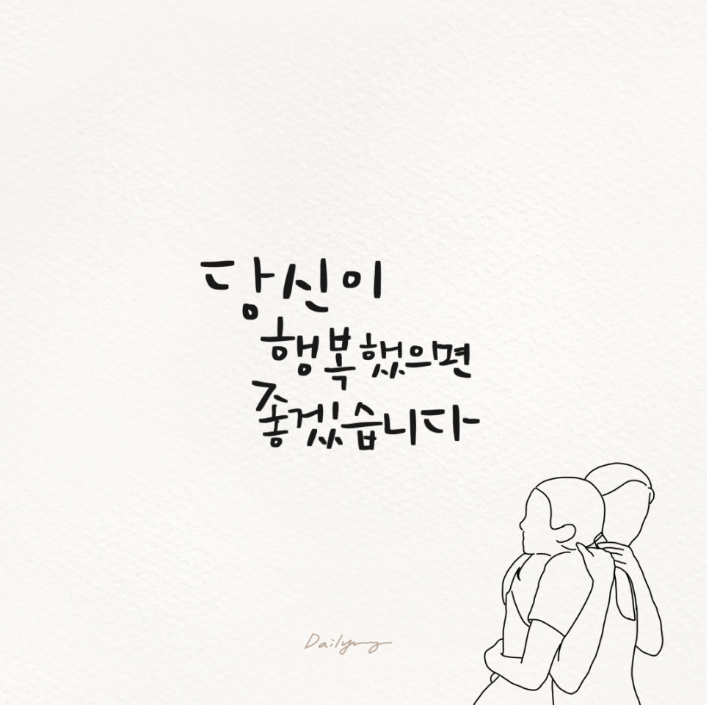 당신이
행복했으면
좋겠습니다
Dailyung